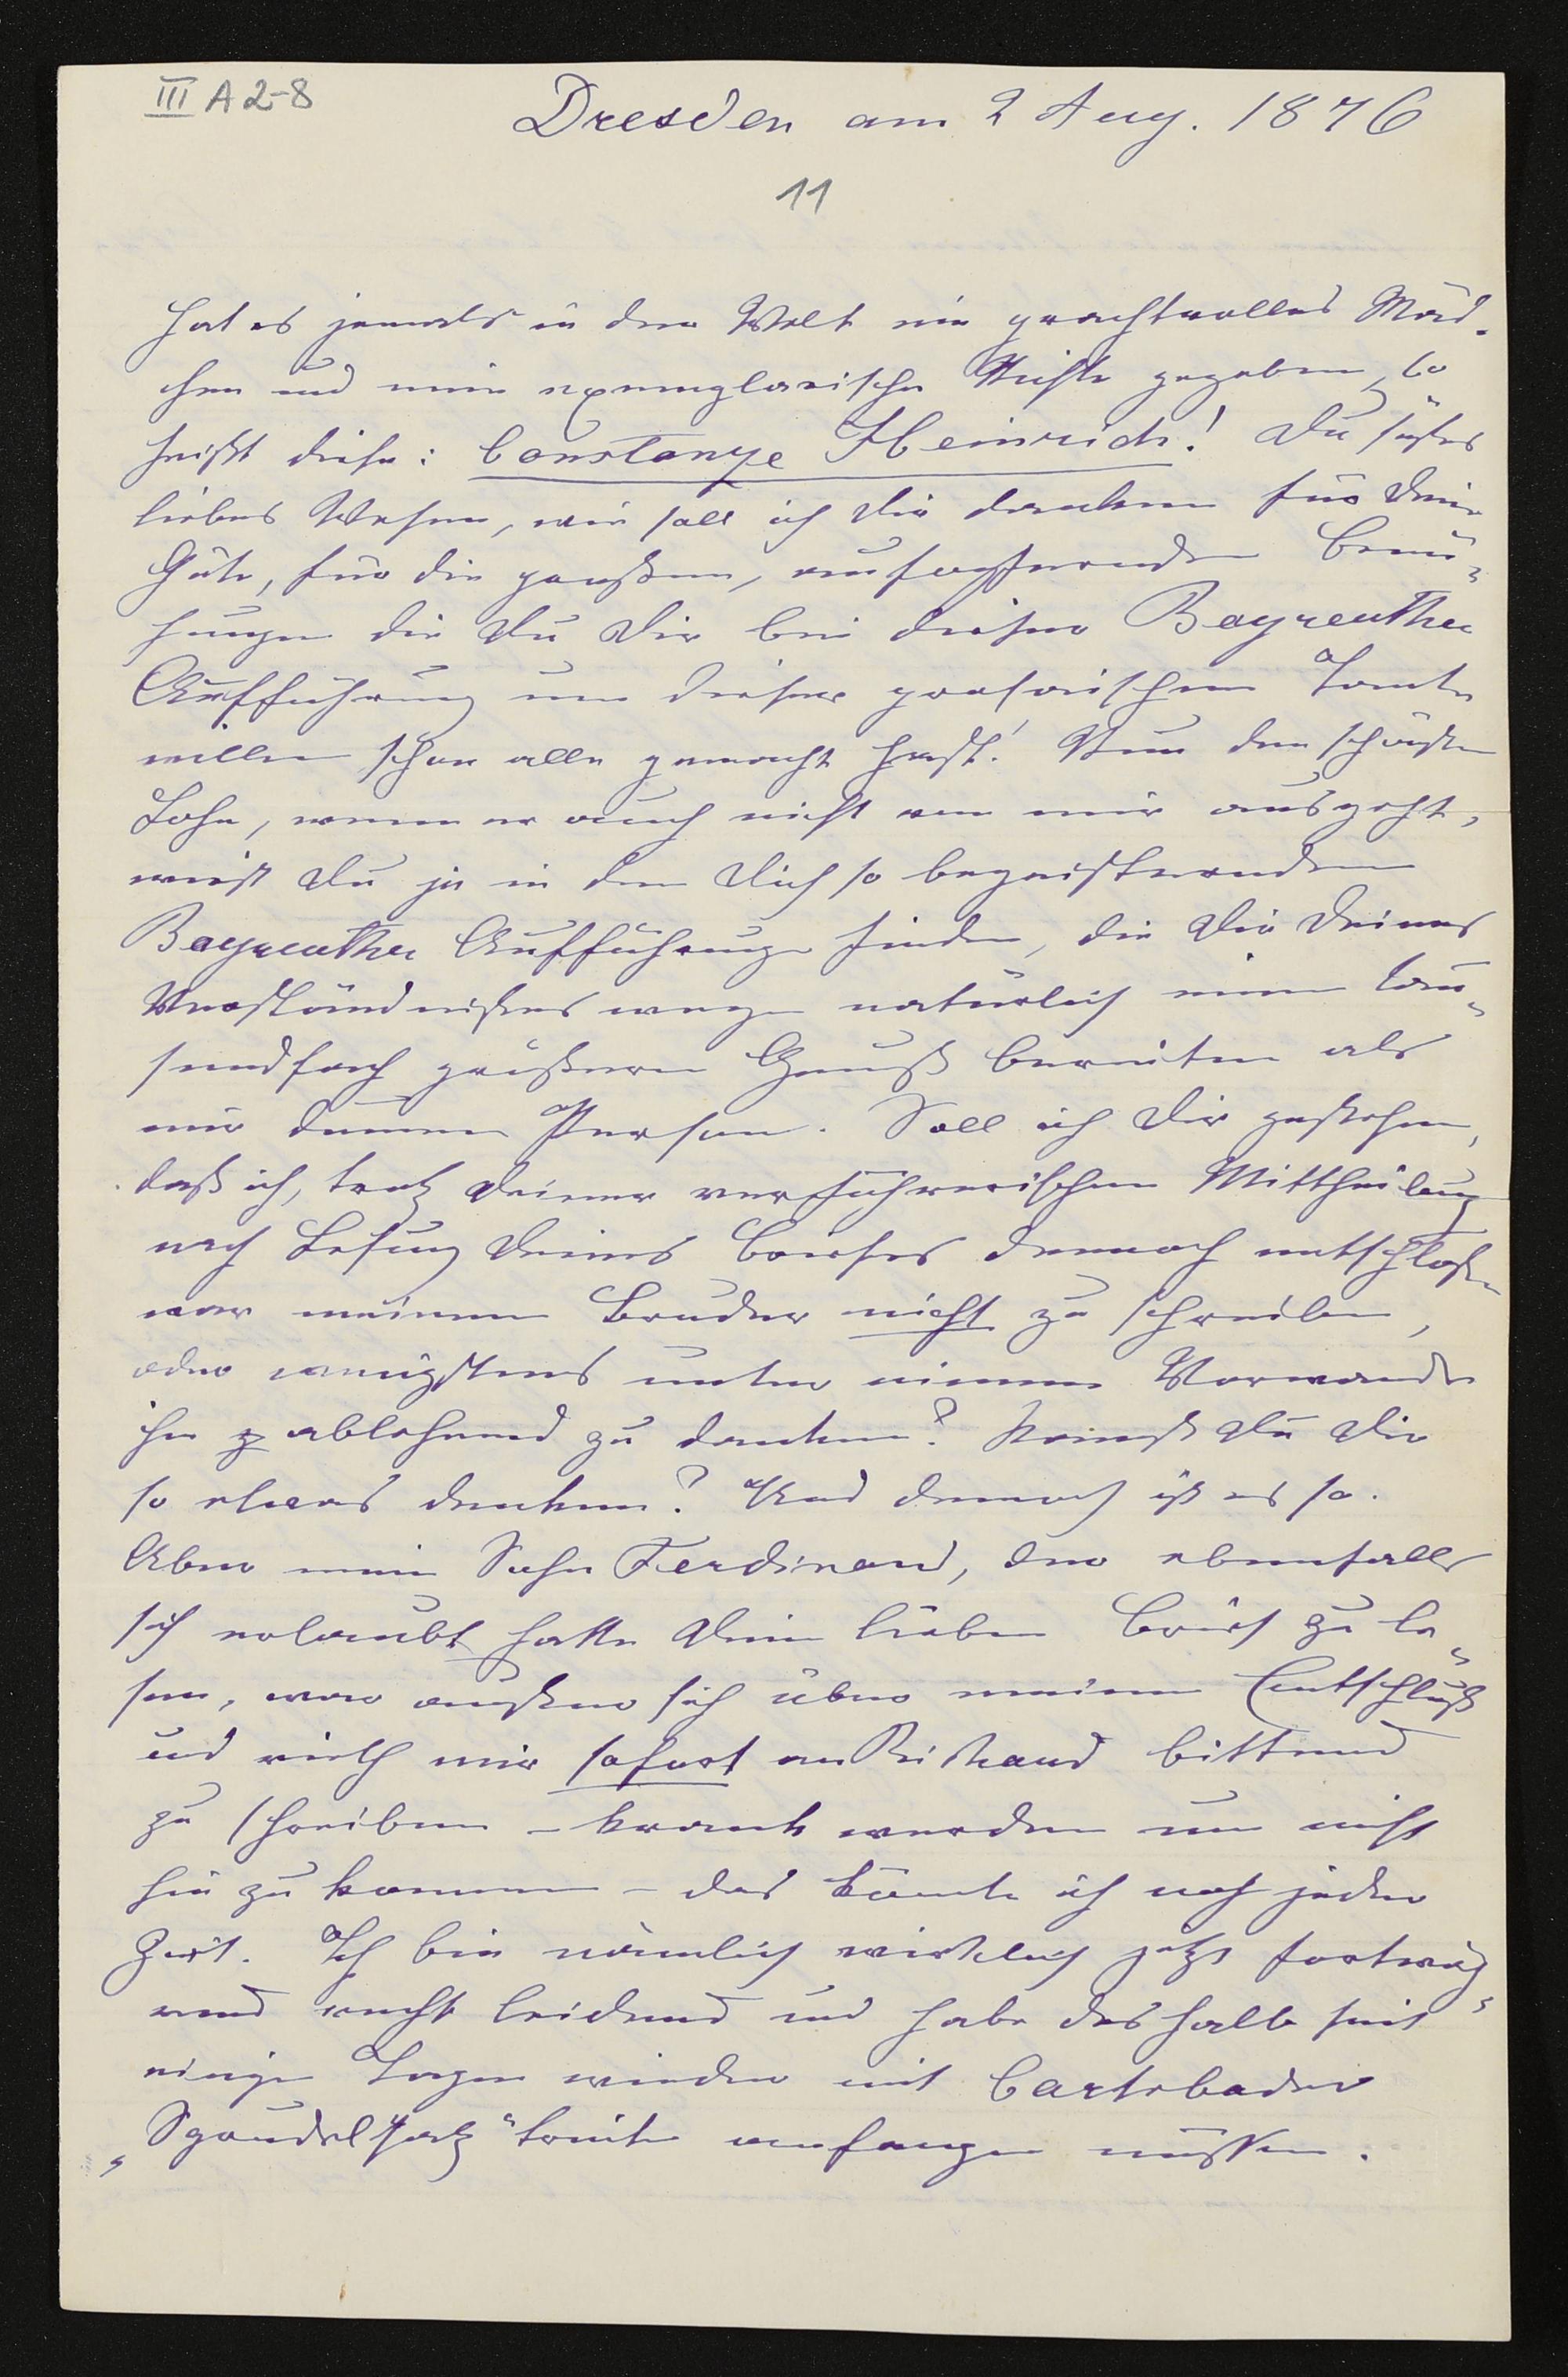 III A 2-8
Dresden am 2 Aug. 1876
11
Hat es jemals in der Welt ein prachtvolles Mäd-
chen und eine exemplarische Nichte gegeben, so
heißt diese: Constanze Heinrich! Du süßes
liebes Wesen, wie soll ich Dir danken für Deine
Güte, für die großen, aufopfernden Bemü-
hungen die Du Dir bei dieser Bayreuther
Aufführung um dieser prosaischen Tante
willen schon alle gemacht hast! Nun den schönsten
Lohn, wenn er auch nicht von mir ausgeht,
wirst Du ja in den Dich so begeisternden
Bayreuther Aufführungen finden, die Dir Deines
Verständnißes wegen natürlich einen tau-
sendfach größeren Genuß bereiten als
mir dummen Person. Soll ich Dir gestehen,
daß ich, trotz Deiner verführerischen Mittheilung
nach Lesung Deines Briefes dennoch entschloßen
war meinem Bruder nicht zu schreiben,
oder wenigstens unter einem Vorwande
ihm z ablehnend zu danken? Kannst Du Dir
so etwas denken? Und dennoch ist es so.
Aber mein Sohn Ferdinand, der ebenfalls
sich erlaubt hatte Deinen lieben Brief zu le-
sen, war außer sich über meinen Entschluß
und rieth mir sofort an Richard bittend
zu schreiben – krank werden um nicht
hin zu kommen – das könnte ich noch jeder
Zeit. Ich bin nämlich wirklich jetzt fortwäh-
rend recht leidend und habe deshalb seit
einigen Tagen wieder mit Carlsbader
„Sprudelsalz" heute anfangen müssen.